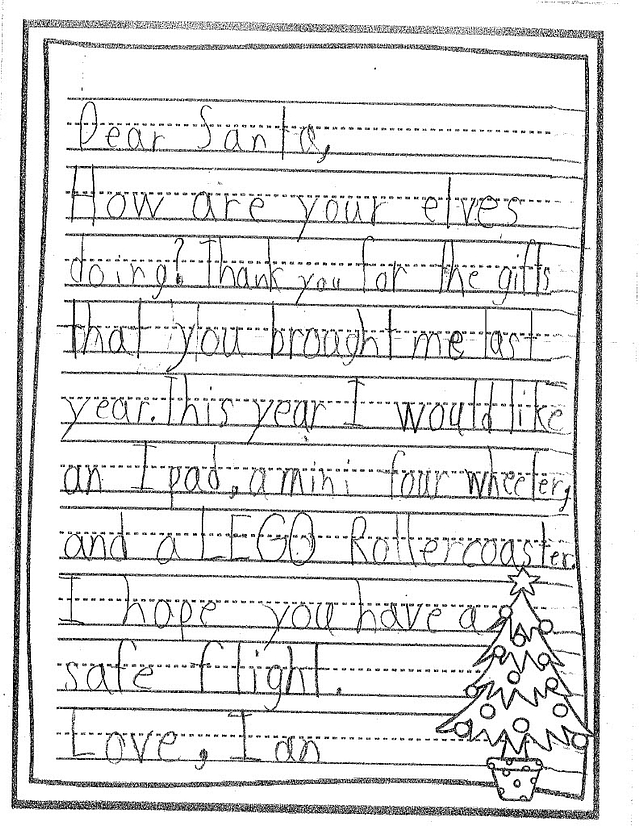 Dear Santa,
How are your elves
doing? Thank you for the gifts
that you brought me last
year. This year I would like
an Ipad, a mini four wheeler,
and a LEGO Rollercoaster.
I hope you have a
safe flight.
Love, Ian